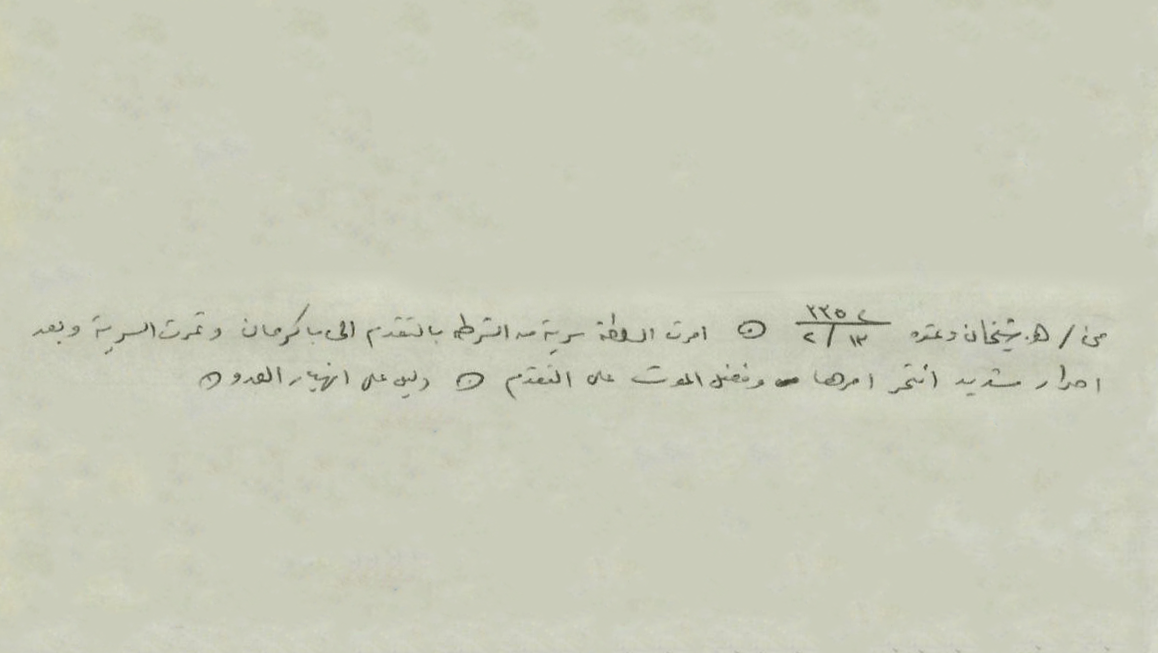 من / هـ. شيخان وعقره ٢٣٥٤ ١٣ / ٢ ⊙ امرت السلطة سرية من الشرطه بالتقدم الى باكرمان وتمردت السرية وبعد
اصرار شديد انتحر امرها وفضل الموت على التقدم ⊙ دليل على انهيار العدو ⊙